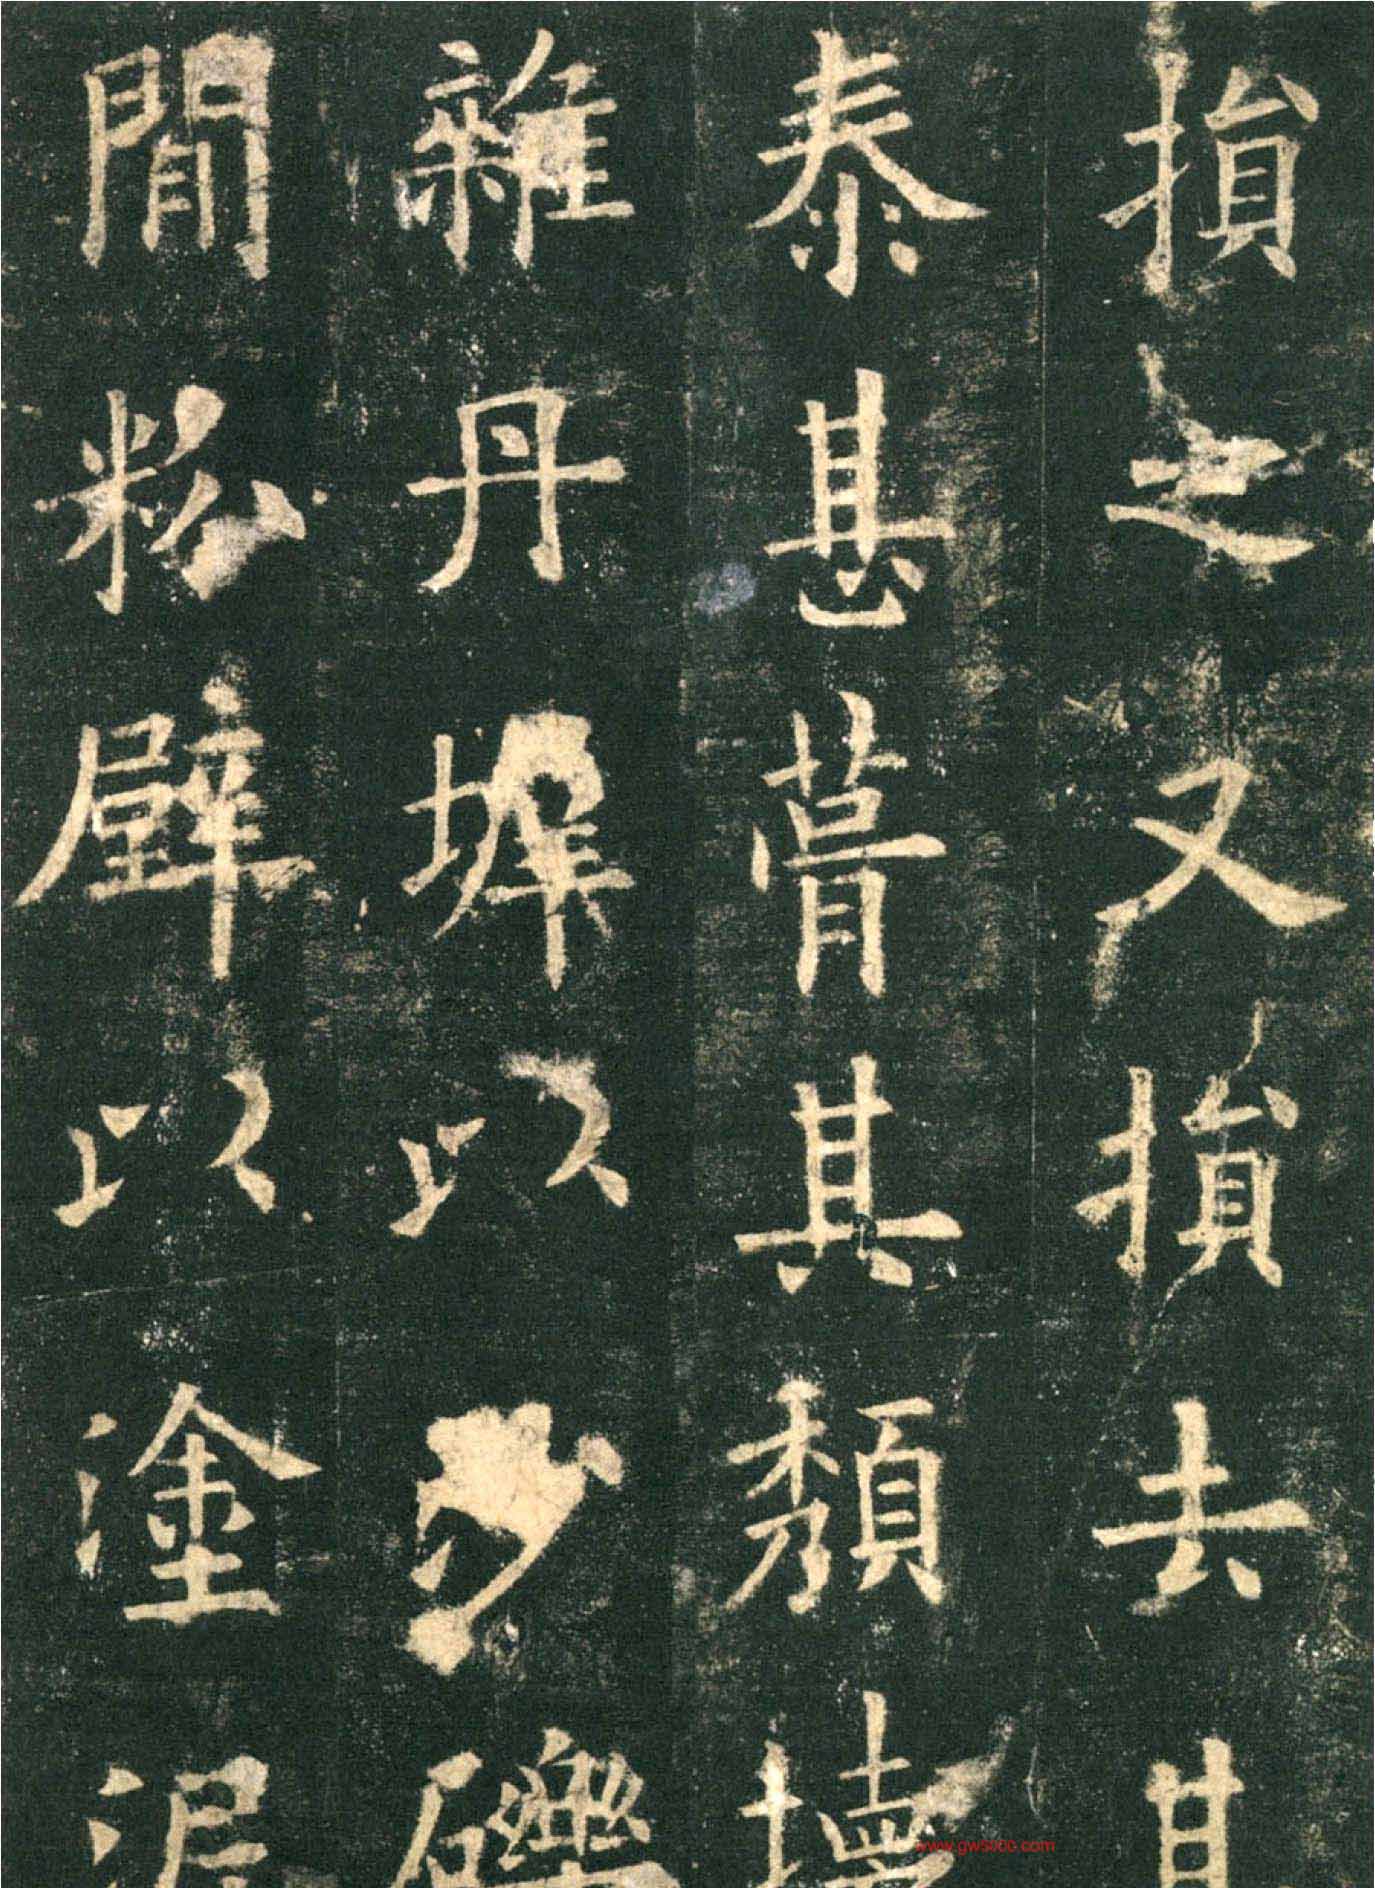 損之又損去其
泰甚葺其頹壞
雜丹墀以沙礫
間粉壁以塗泥
www.gw5000.com